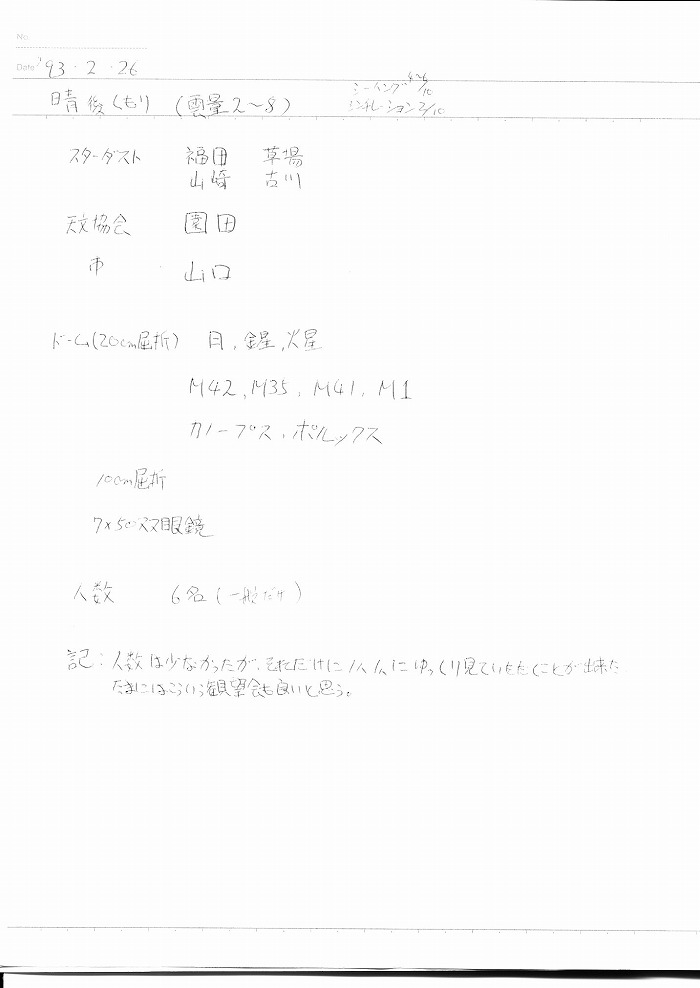 No.
Date '93・2・26
シーイング 4~6/10
晴後くもり (雲量2~8)
シンチレーション 2/10
スターダスト 福田 草場
山崎 古川
天文協会 園田
市 山口
ドーム(20cm屈折) 月、金星、火星
M42、M35、M41、M1
カノープス、ポルックス
10cm屈折
7×50双眼鏡
人数 6名(一般だけ)
記:人数は少なかったが、それだけに1人1人にゆっくり見ていただくことが出来た
たまにはこういう観望会も良いと思う。